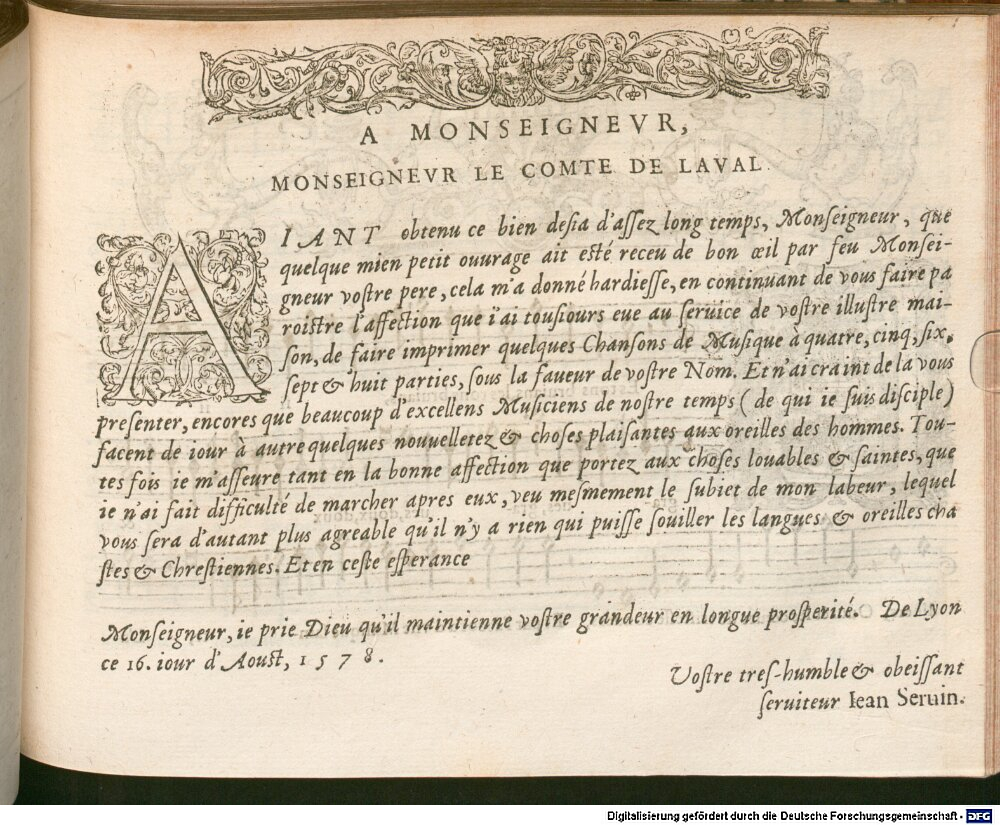 A MONSEIGNEVR,
MONSEIGNEVR LE COMTE DE LAVAL.
AIANT obtenu ce bien desia d'assez long temps, Monseigneur, que
quelque mien petit ouurage ait esté receu de bon œil par feu Monsei-
gneur vostre pere, cela m'a donné hardiesse, en continuant de vous faire pa
roistre l'affection que i'ai tousiours eue au seruice de vostre illustre mai-
son, de faire imprimer quelques Chansons de Musique à quatre, cinq, six,
sept & huit parties, sous la faueur de vostre Nom. Et n'ai craint de la vous
presenter, encores que beaucoup d'excellens Musiciens de nostre temps (de qui ie suis disciple)
facent de iour à autre quelques nouuelletez & choses plaisantes aux oreilles des hommes. Tou-
tes fois ie m'asseure tant en la bonne affection que portez aux choses louables & saintes, que
ie n'ai fait difficulté de marcher apres eux, veu mesmement le subiet de mon labeur, lequel
vous sera d'autant plus agreable qu'il n'y a rien qui puisse souiller les langues & oreilles cha
stes & Chrestiennes. Et en ceste esperance
Monseigneur, ie prie Dieu qu'il maintienne vostre grandeur en longue prosperité. De Lyon
ce 16. iour d'Aoust, 1578.
Vostre tres-humble & obeissant
seruiteur Iean Seruin.
Digitalisierung gefördert durch die Deutsche Forschungsgemeinschaft - DFG